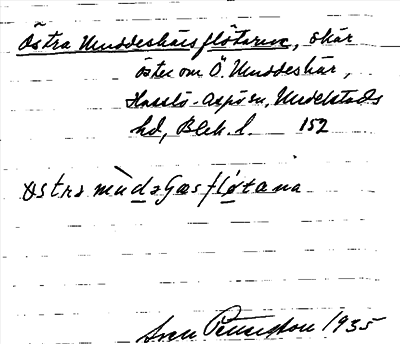 Östra Muddeskärsflötarne, skär
öster om Ö. Muddeskär,
Hasslö-Aspö sn, Medelstads
hd, Blek. l. 152
östra mùdəʃæsfløtana
Sven Benson 1935